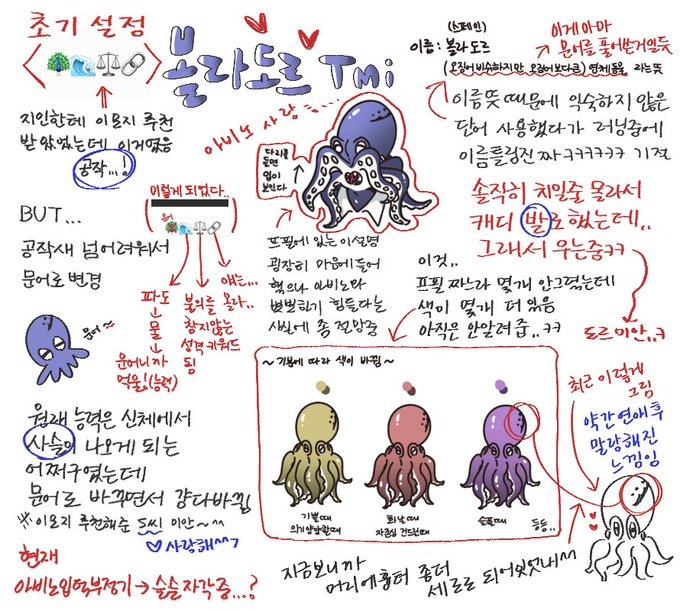 초기 설정
볼라도르 TMi
지인한테 이모지 추천
받았었는데 이거였음
공작...!
BUT...
공작새 넘 어려워서
문어로 변경
문어~
이렇게 되었다..
파도
↓
물
↓
문어니까
먹물!(능력)
불의를
참지않는
성격 키워드
됨
얘는...
몰라..
원래 능력은 신체에서
사슬이 나오게 되는
어쩌구였는데
문어로 바꾸면서 걍 다 바뀜
※ 이모지 추천해준 S씨 미안~^^
♡ 사랑해^^7
현재
아비노 입덕부정기 → 슬슬 자각중...?
아비노 사랑
다리를
들면
입이
보인다
프필에 있는 이 설명
굉장히 마음에 들어
핵으나 아비노라
밝히기 힘들다는
사실에 좀
(스페인)
이름 : 볼라도르
이게 아마
문어를 풀어쓴거일듯
(오징어 비슷하지만 오징어보다 큰) 연체동물 라는 뜻
이름뜻 때문에 익숙하지 않은
단어 사용했다가 러닝중에
이름틀림 진짜 ㅋㅋㅋㅋㅋㅋ 기절
솔직히 치일줄 몰라서
캐디 발로 했는데..
그래서 우는중ㅋㅋ
도르 미안..ㅋ
이것..
프필 짜느라 몇개 안그렸는데
색이 몇개 더 있음
아직은 안알려줌..ㅋㅋ
~ 기분에 따라 색이 바뀜 ~
기쁠때
의기양양할때
화날때
자존심 건드릴때
슬플때
등등..
최근 이렇게
그림
약간 연애 후
말랑해진
느낌임
지금보니까
머리에 흉터 좀더
세로로 되어있었네^^